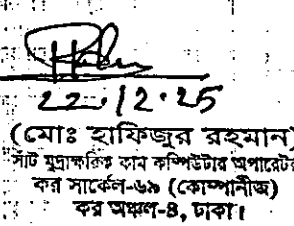 22.12.25
(মোঃ হাফিজুর রহমান)
সাঁট মুদ্রাক্ষরিক কাম কম্পিউটার অপারেটর
কর সার্কেল-৬৯ (কোম্পানীজ)
কর অঞ্চল-৪, ঢাকা।